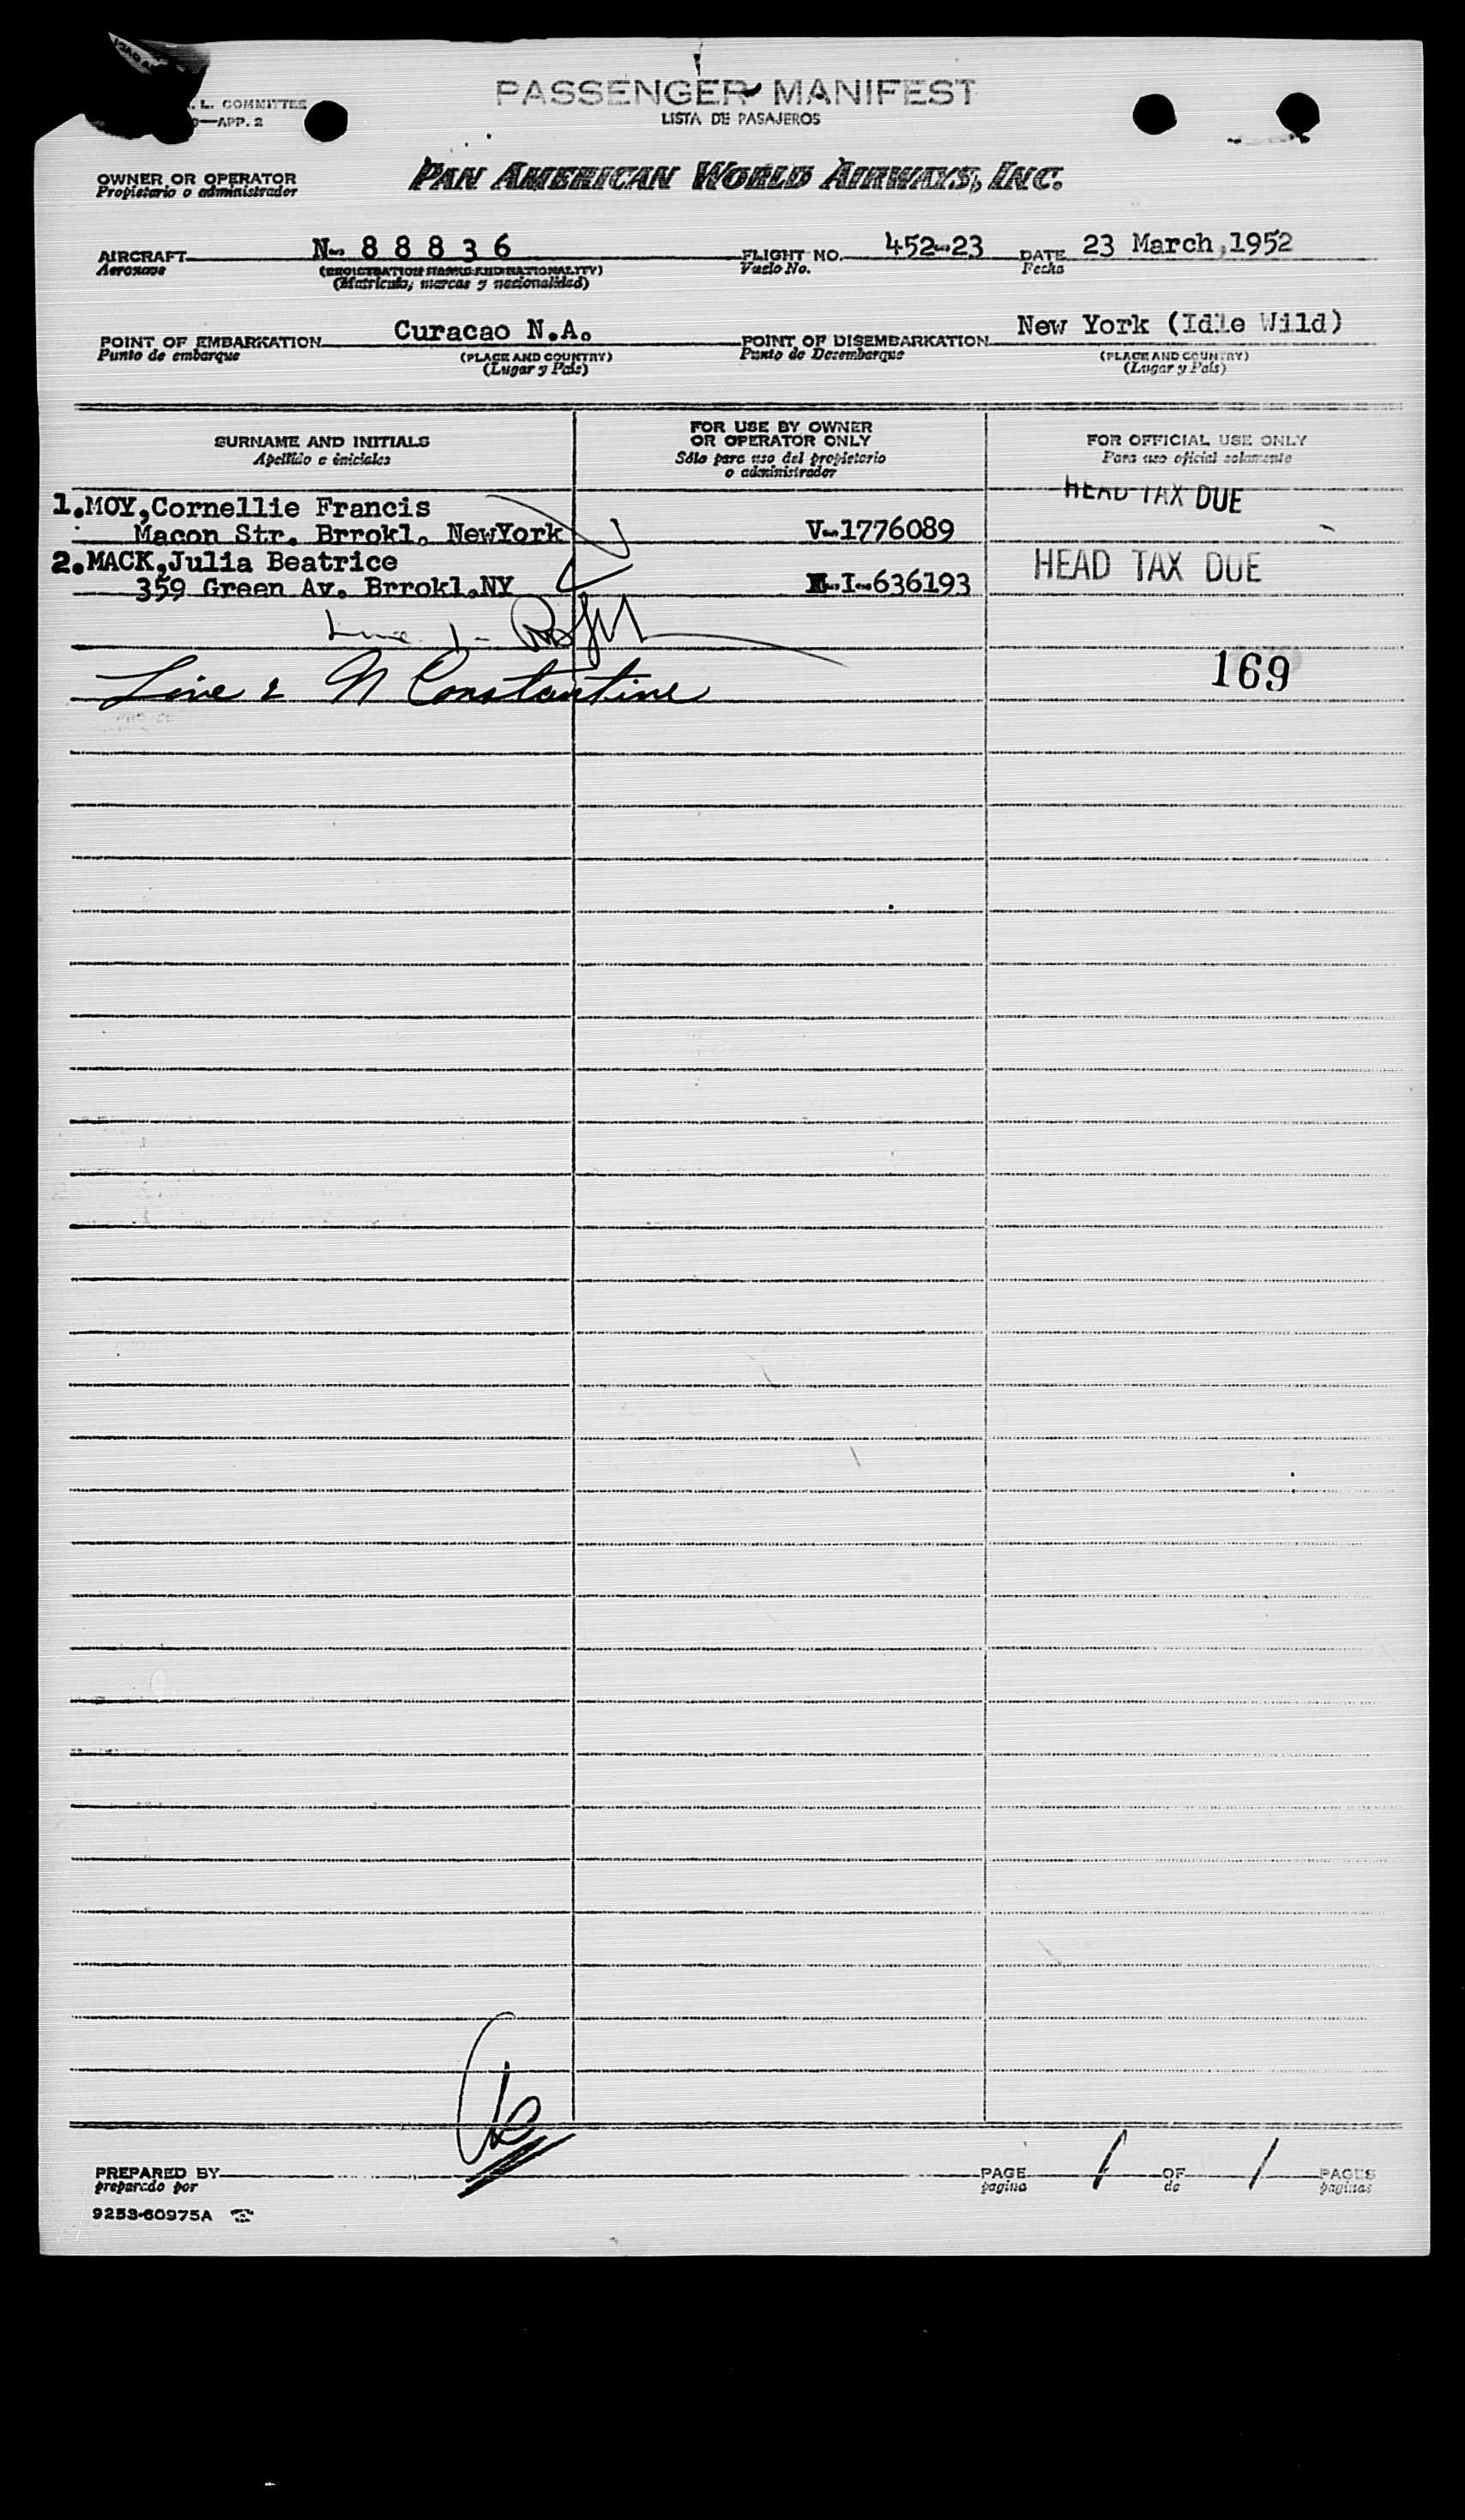 L. COMMITTEE
—APP. 2
PASSENGER MANIFEST
LISTA DE PASAJEROS
OWNER OR OPERATOR
Propietario o administrador
PAN AMERICAN WORLD AIRWAYS, INC.
AIRCRAFT N- 8 8 8 3 6 FLIGHT NO. 452-23 DATE 23 March,1952
Aeronave (REGISTRATION MARKS AND NATIONALITY) Vuelo No. Fecha
(Matricula, marcas y nacionalidad)
POINT OF EMBARKATION Curacao N.A. POINT OF DISEMBARKATION New York (Idle Wild)
Punto de embarque (PLACE AND COUNTRY) Punto de Desembarque (PLACE AND COUNTRY)
(Lugar y País) (Lugar y País)
SURNAME AND INITIALS
Apellido e iniciales
FOR USE BY OWNER
OR OPERATOR ONLY
Sólo para uso del propietario
o administrador
FOR OFFICIAL USE ONLY
Para uso oficial solamente
1.MOY,Cornellie Francis HEAD TAX DUE
Macon Str. Brrokl. NewYork V-1776089
2.MACK,Julia Beatrice HEAD TAX DUE
359 Green Av. Brrokl.NY I-636193
Line 1-
169
Line 2 N Constantine
PREPARED BY PAGE 1 OF 1 PAGES
preparado por pagina de paginas
9253-60975A